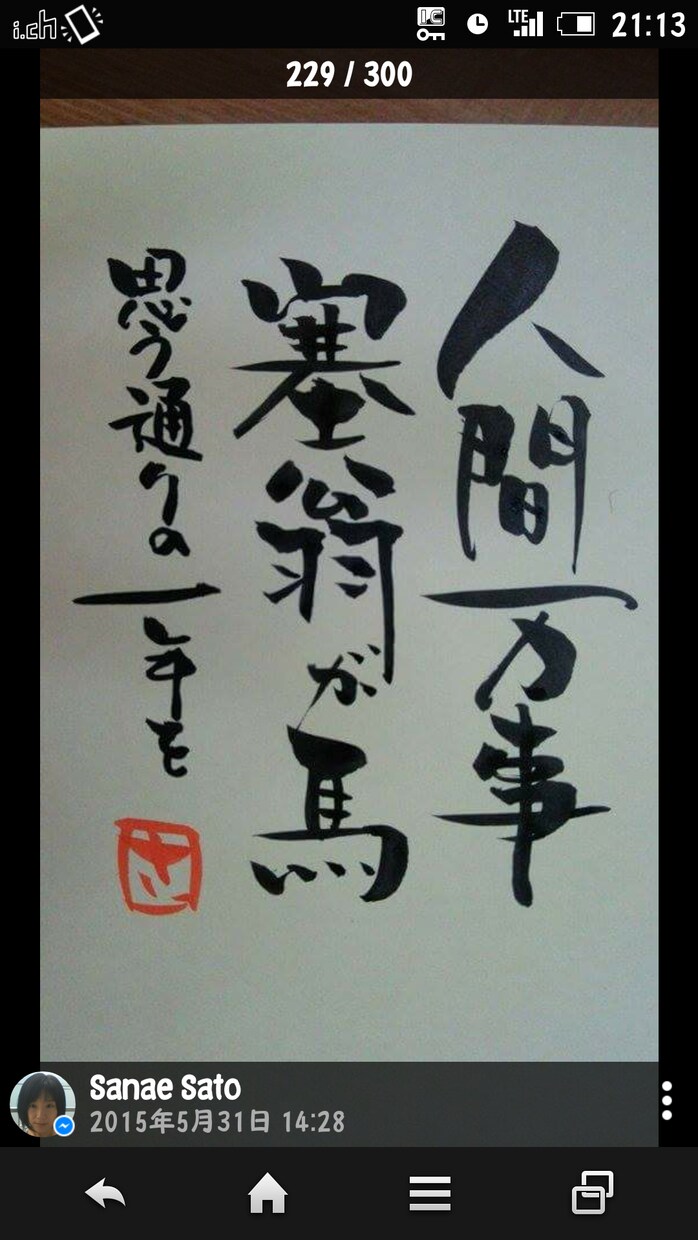 i.ch
IC
LTE
21:13
229 / 300
人間一万事
塞翁が馬
思う通りの一年を
Sanae Sato
2015年5月31日 14:28